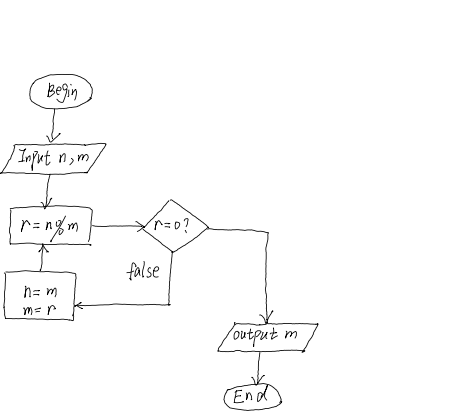 Begin
Input n, m
r = n % m
r=0?
false
n= m
m= r
output m
End